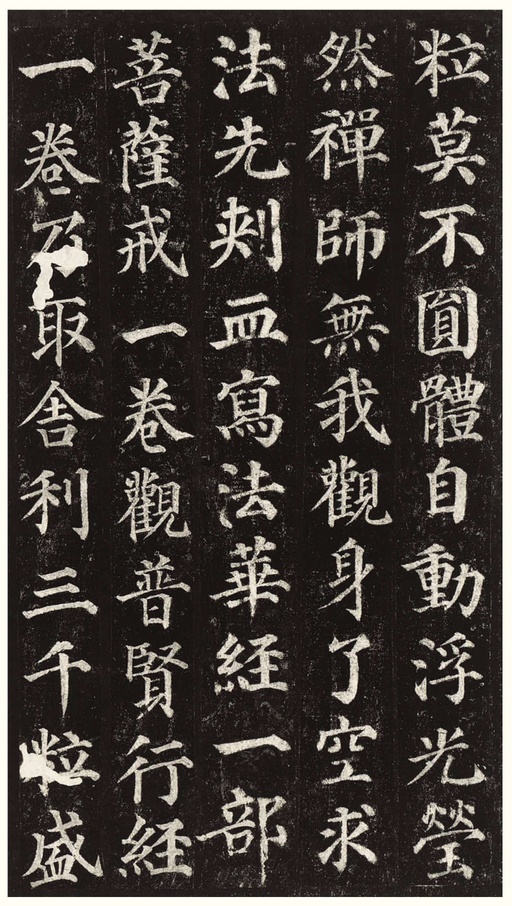 粒莫不圓體自動浮光瑩
然禪師無我觀身了空求
法先刺血寫法華経一部
菩薩戒一卷觀普賢行経
一卷乃取舍利三千粒盛